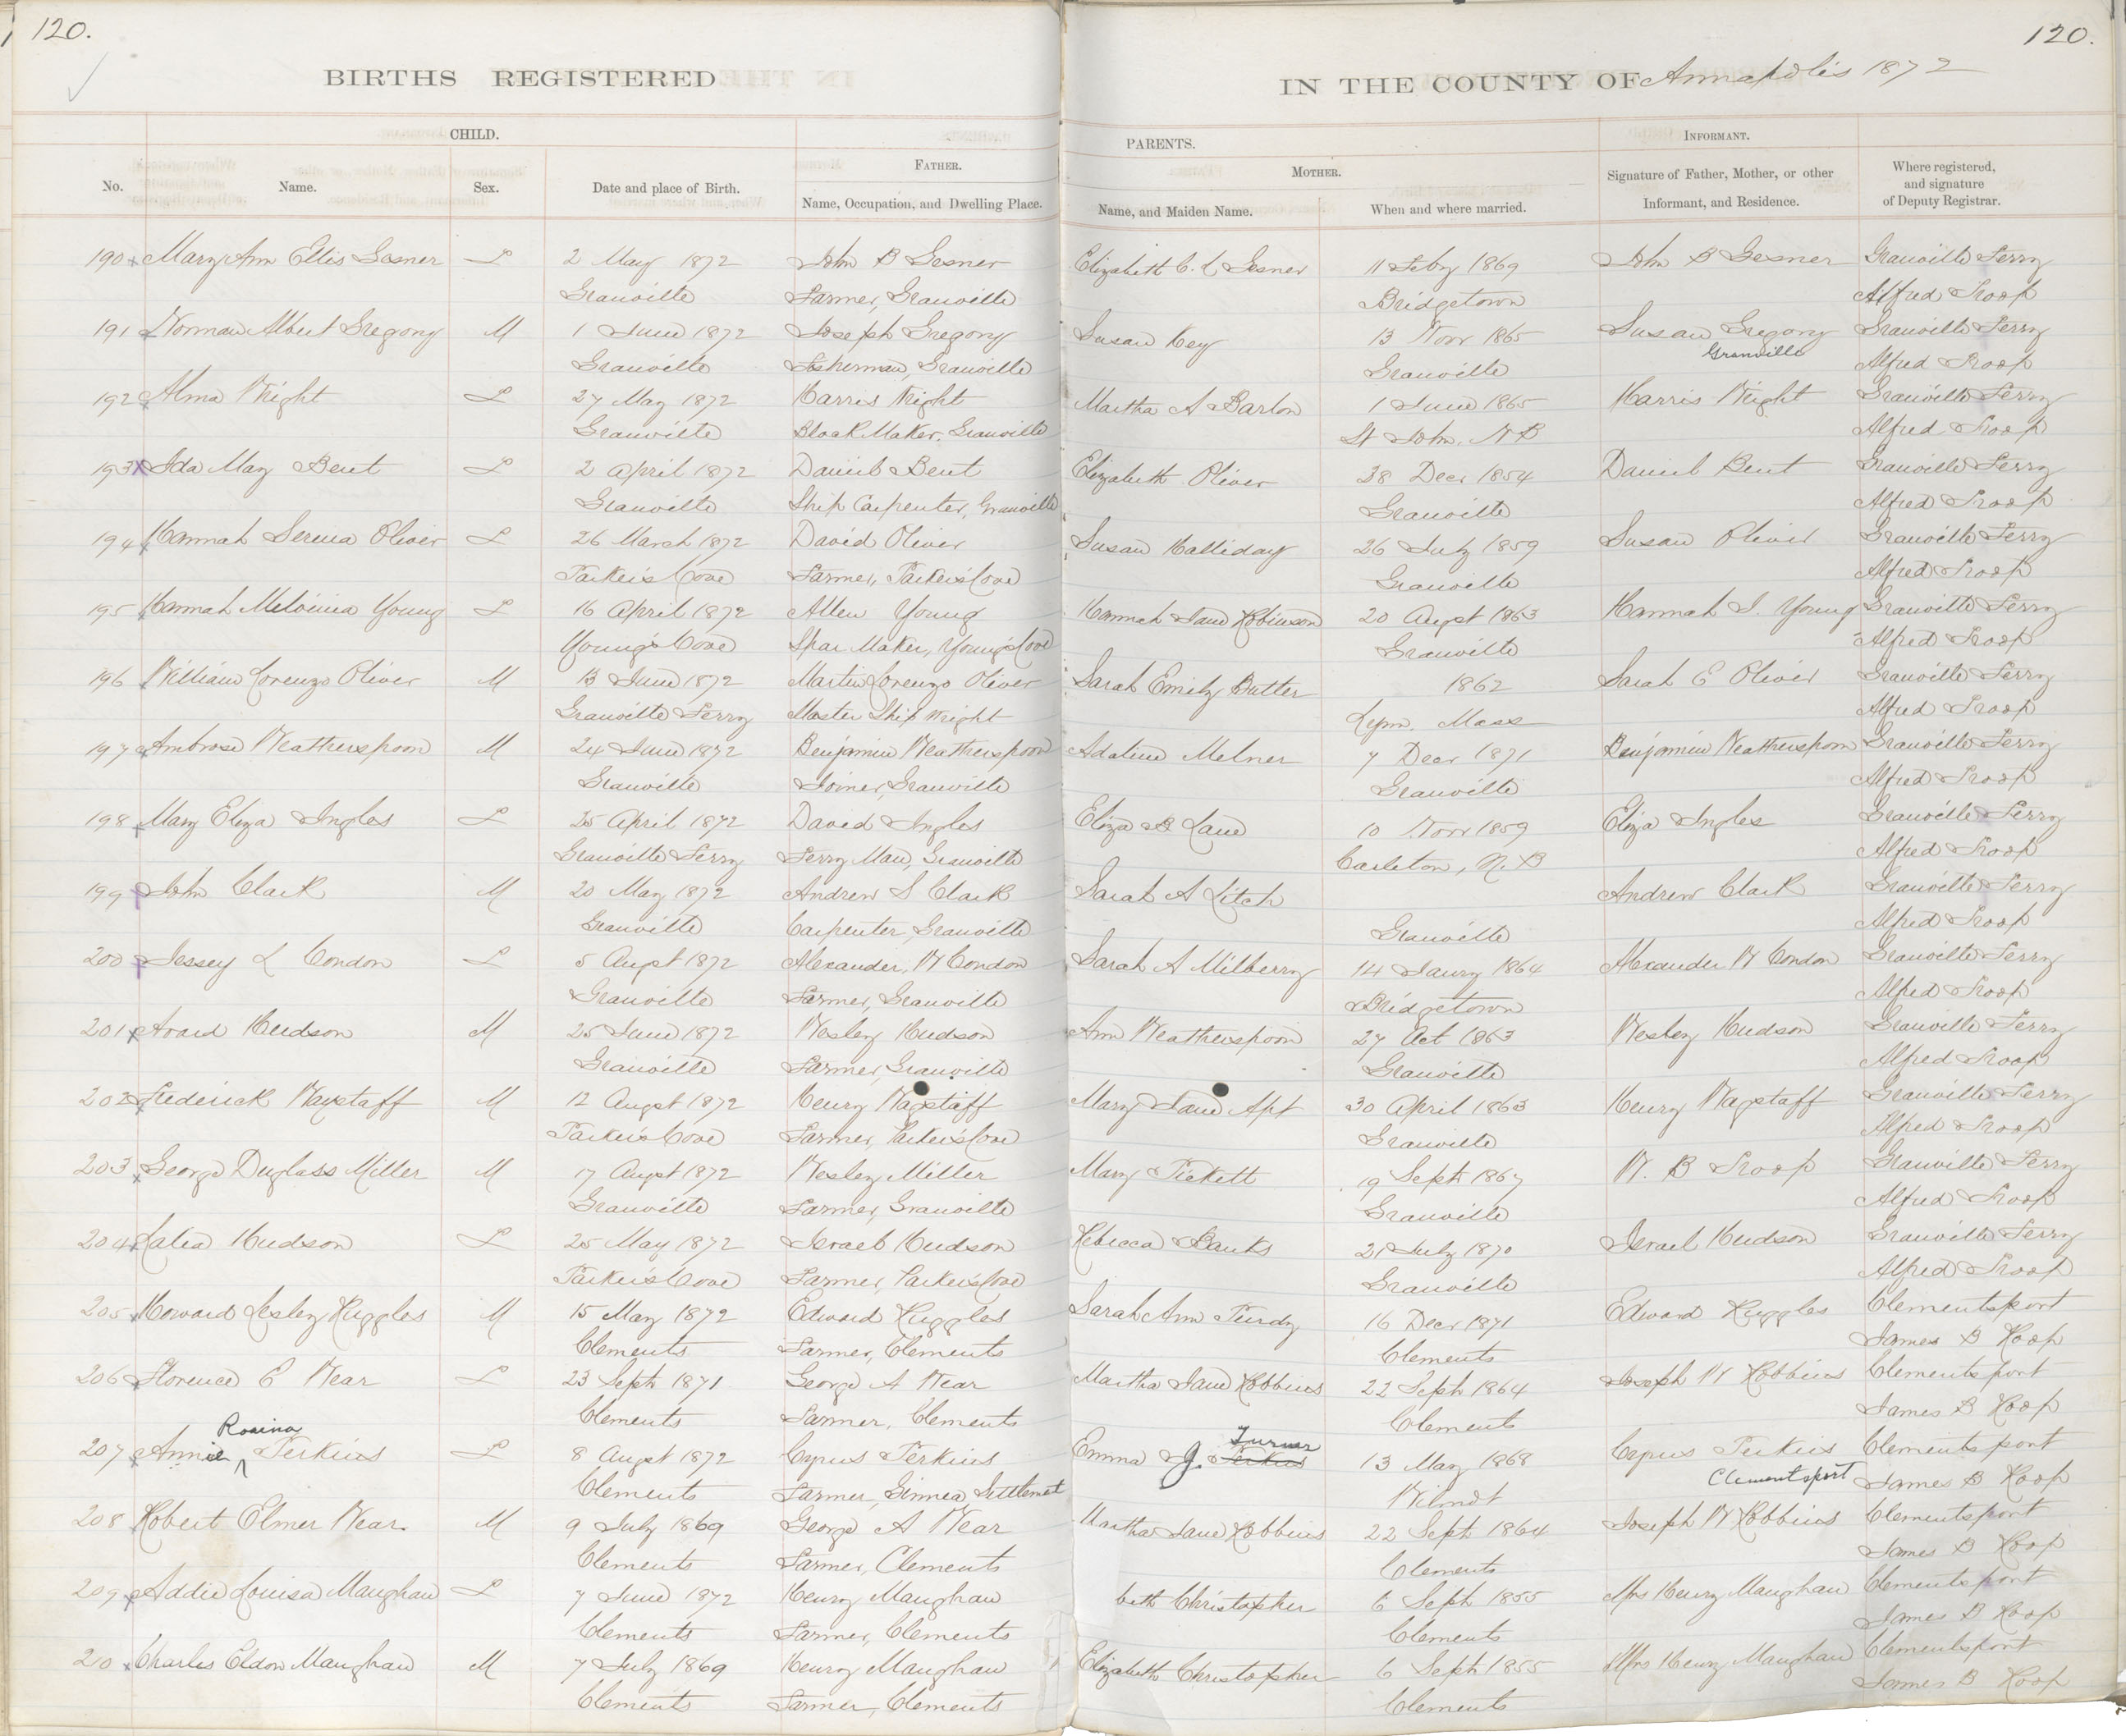 120.
120.
BIRTHS REGISTERED
IN THE COUNTY OF Annapolis 1872
CHILD.
PARENTS.
INFORMANT.
No.
Name.
Sex.
Date and place of Birth.
FATHER.
Name, Occupation, and Dwelling Place.
MOTHER.
Name, and Maiden Name.
When and where married.
Signature of Father, Mother, or other
Informant, and Residence.
Where registered,
and signature
of Deputy Registrar.
190 Mary Ann Ellis Gesner F 2 May 1872 John B Gesner Elizabeth C. L Gesner 11 Feby 1869 John B Gesner Granville Ferry
Granville Farmer, Granville Bridgetown Alfred Troop
191 Norman Albert Gregory M 1 June 1872 Joseph Gregory Susan Key 13 Novr 1865 Susan Gregory Granville Ferry
Granville Fisherman, Granville Granville Granville Alfred Troop
192 Alma Wright F 27 May 1872 Harris Wright Martha A Barton 1 June 1865 Harris Wright Granville Ferry
Granville Block Maker, Granville St John, N B Alfred Troop
193 Ida May Bent F 2 April 1872 Daniel Bent Elizabeth Oliver 28 Decr 1854 Daniel Bent Granville Ferry
Granville Ship Carpenter, Granville Granville Alfred Troop
194 Hannah Serena Oliver F 26 March 1872 David Oliver Susan Halliday 26 July 1859 Susan Oliver Granville Ferry
Parker's Cove Farmer, Parker's Cove Granville Alfred Troop
195 Hannah Young F 16 April 1872 Allen Young Hannah Jane Robinson 20 Augst 1863 Hannah J. Young Granville Ferry
Young's Cove Spar Maker, Young's Cove Granville Alfred Troop
196 William Lorenzo Oliver M 13 June 1872 Martin Lorenzo Oliver Sarah Emily Butler 1862 Sarah E Oliver Granville Ferry
Granville Ferry Master Ship Wright Lynn, Mass Alfred Troop
197 Ambrose Weatherspoon M 24 June 1872 Benjamin Weatherspoon Adaline Melner 7 Decr 1871 Benjamin Weatherspoon Granville Ferry
Granville Joiner, Granville Granville Alfred Troop
198 Mary Eliza Ingles F 25 April 1872 David Ingles Eliza B Lane 10 Novr 1859 Eliza Ingles Granville Ferry
Granville Ferry Ferry Man, Granville Carleton, N. B Alfred Troop
199 John Clark M 20 May 1872 Andrew S Clark Sarah A Litch Andrew Clark Granville Ferry
Granville Carpenter, Granville Granville Alfred Troop
200 Jessey L Condon F 5 Augst 1872 Alexander, W Condon Sarah A Milberry 14 Janry 1864 Alexander W Condon Granville Ferry
Granville Farmer, Granville Bridgetown Alfred Troop
201 Avard Hudson M 25 June 1872 Wesley Hudson Ann Weatherspoon 27 Oct 1863 Wesley Hudson Granville Ferry
Granville Farmer, Granville Granville Alfred Troop
202 Frederick Wagstaff M 12 Augst 1872 Henry Wagstaff Mary Jane Apt 30 April 1863 Henry Wagstaff Granville Ferry
Parker's Cove Farmer, Parker's Cove Granville Alfred Troop
203 George Duglass Miller M 17 Augst 1872 Wesley Miller Mary Pickett 19 Sept 1867 W. B Troop Granville Ferry
Granville Farmer, Granville Granville Alfred Troop
204 Hudson F 25 May 1872 Israel Hudson Rebecca Banks 21 July 1870 Israel Hudson Granville Ferry
Parker's Cove Farmer, Parker's Cove Granville Alfred Troop
205 Howard Lesley Ruggles M 15 May 1872 Edward Ruggles Sarah Ann Purdy 16 Decr 1871 Edward Ruggles Clementsport
Clements Farmer, Clements Clements James B Roop
206 Florence E Wear F 23 Sept 1871 George A Wear Martha Jane Robbins 22 Sept 1864 Joseph W Robbins Clementsport
Clements Farmer, Clements Clements James B Roop
Rosina Turner
207 Annie Perkins F 8 Augst 1872 Cyrus Perkins Emma J. Perkins 13 May 1868 Cyrus Perkins Clementsport
Clements Farmer, Ginnea Settlemet Wilmot Clementsport James B Roop
208 Robert Elmer Wear M 9 July 1869 George A Wear Martha Jane Robbins 22 Sept 1864 Joseph W Robbins Clementsport
Clements Farmer, Clements Clements James B Roop
209 Addie Louisa Maughan F 7 June 1872 Henry Maughan beth Christopher 6 Sept 1855 Mrs Henry Maughan Clementsport
Clements Farmer, Clements Clements James B Roop
210 Charles Eldon Maughan M 7 July 1869 Henry Maughan Elizabeth Christopher 6 Sept 1855 Mrs Henry Maughan Clementsport
Clements Farmer, Clements Clements James B Roop